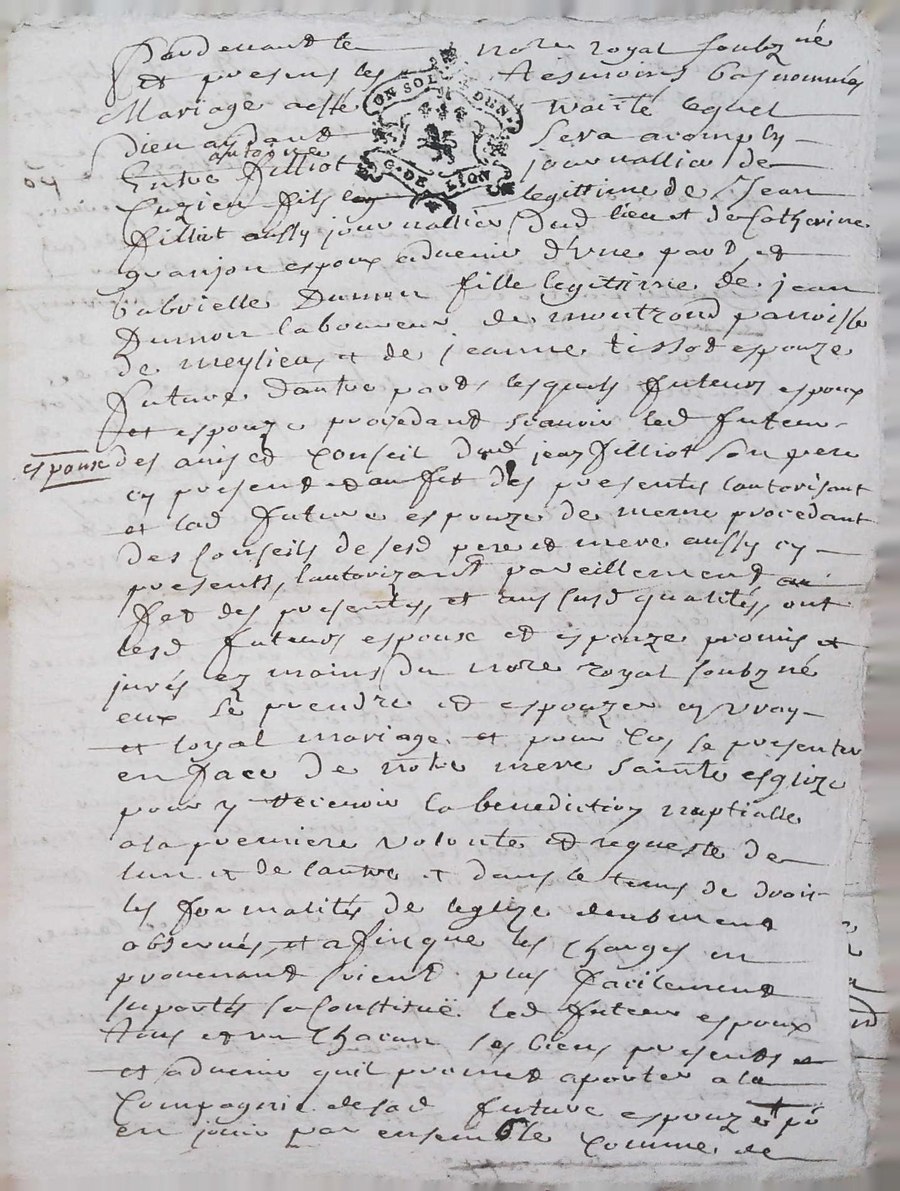 Pardevant le notre royal soubz né
Et presens les tesmoins bas nommés
Mariage a esté traité lequel
Dieu aydant sera acomply
UN SOL DUN.
G. DE LION
antoinne
Entre filliot journallier de
Cuzieu fils legittime de Jean
filliot aussy journallier dud lieu et de Catherine
granjon espoux advenir d'vne part, et
Gabrielle Dumon fille legittime de jean
Dumon laboureur de montrond parroisse
de meylieu et de jeanne tissot espouze
future dautre part, lesquels futeurs espoux
et espouze procedant scavoir led futeur
espoux des avis et conseil dud jean filliot son pere
cy present et au fet des presentes lautorisant
et lad future espouze de meme procedant
des conseils de sesd pere et mere aussy cy
presents, lautorizant pareillement au
fet des presentes, et aus susd qualités, ont
lesd futeurs espoux et espouze promis et
jurés ez mains du notre royal soubz né
eux se prendre et espouzer en vray
et loyal mariage et pour ce se presenter
en face de notre mere sainte esglize
pour y recevoir la benediction nuptialle
a la premiere volonté et requeste de
lun et de lautre et dans le tems de droit
les formalités de leglize deubment
observés, et afin que les charges en
provenant soient plus facilement
suportés sa constitué led futeur espoux
tous et un chacun ses biens presents
et advenir quil promet aporter a la
compagnie de sad future espouze po
en jouir par ensemble comme de